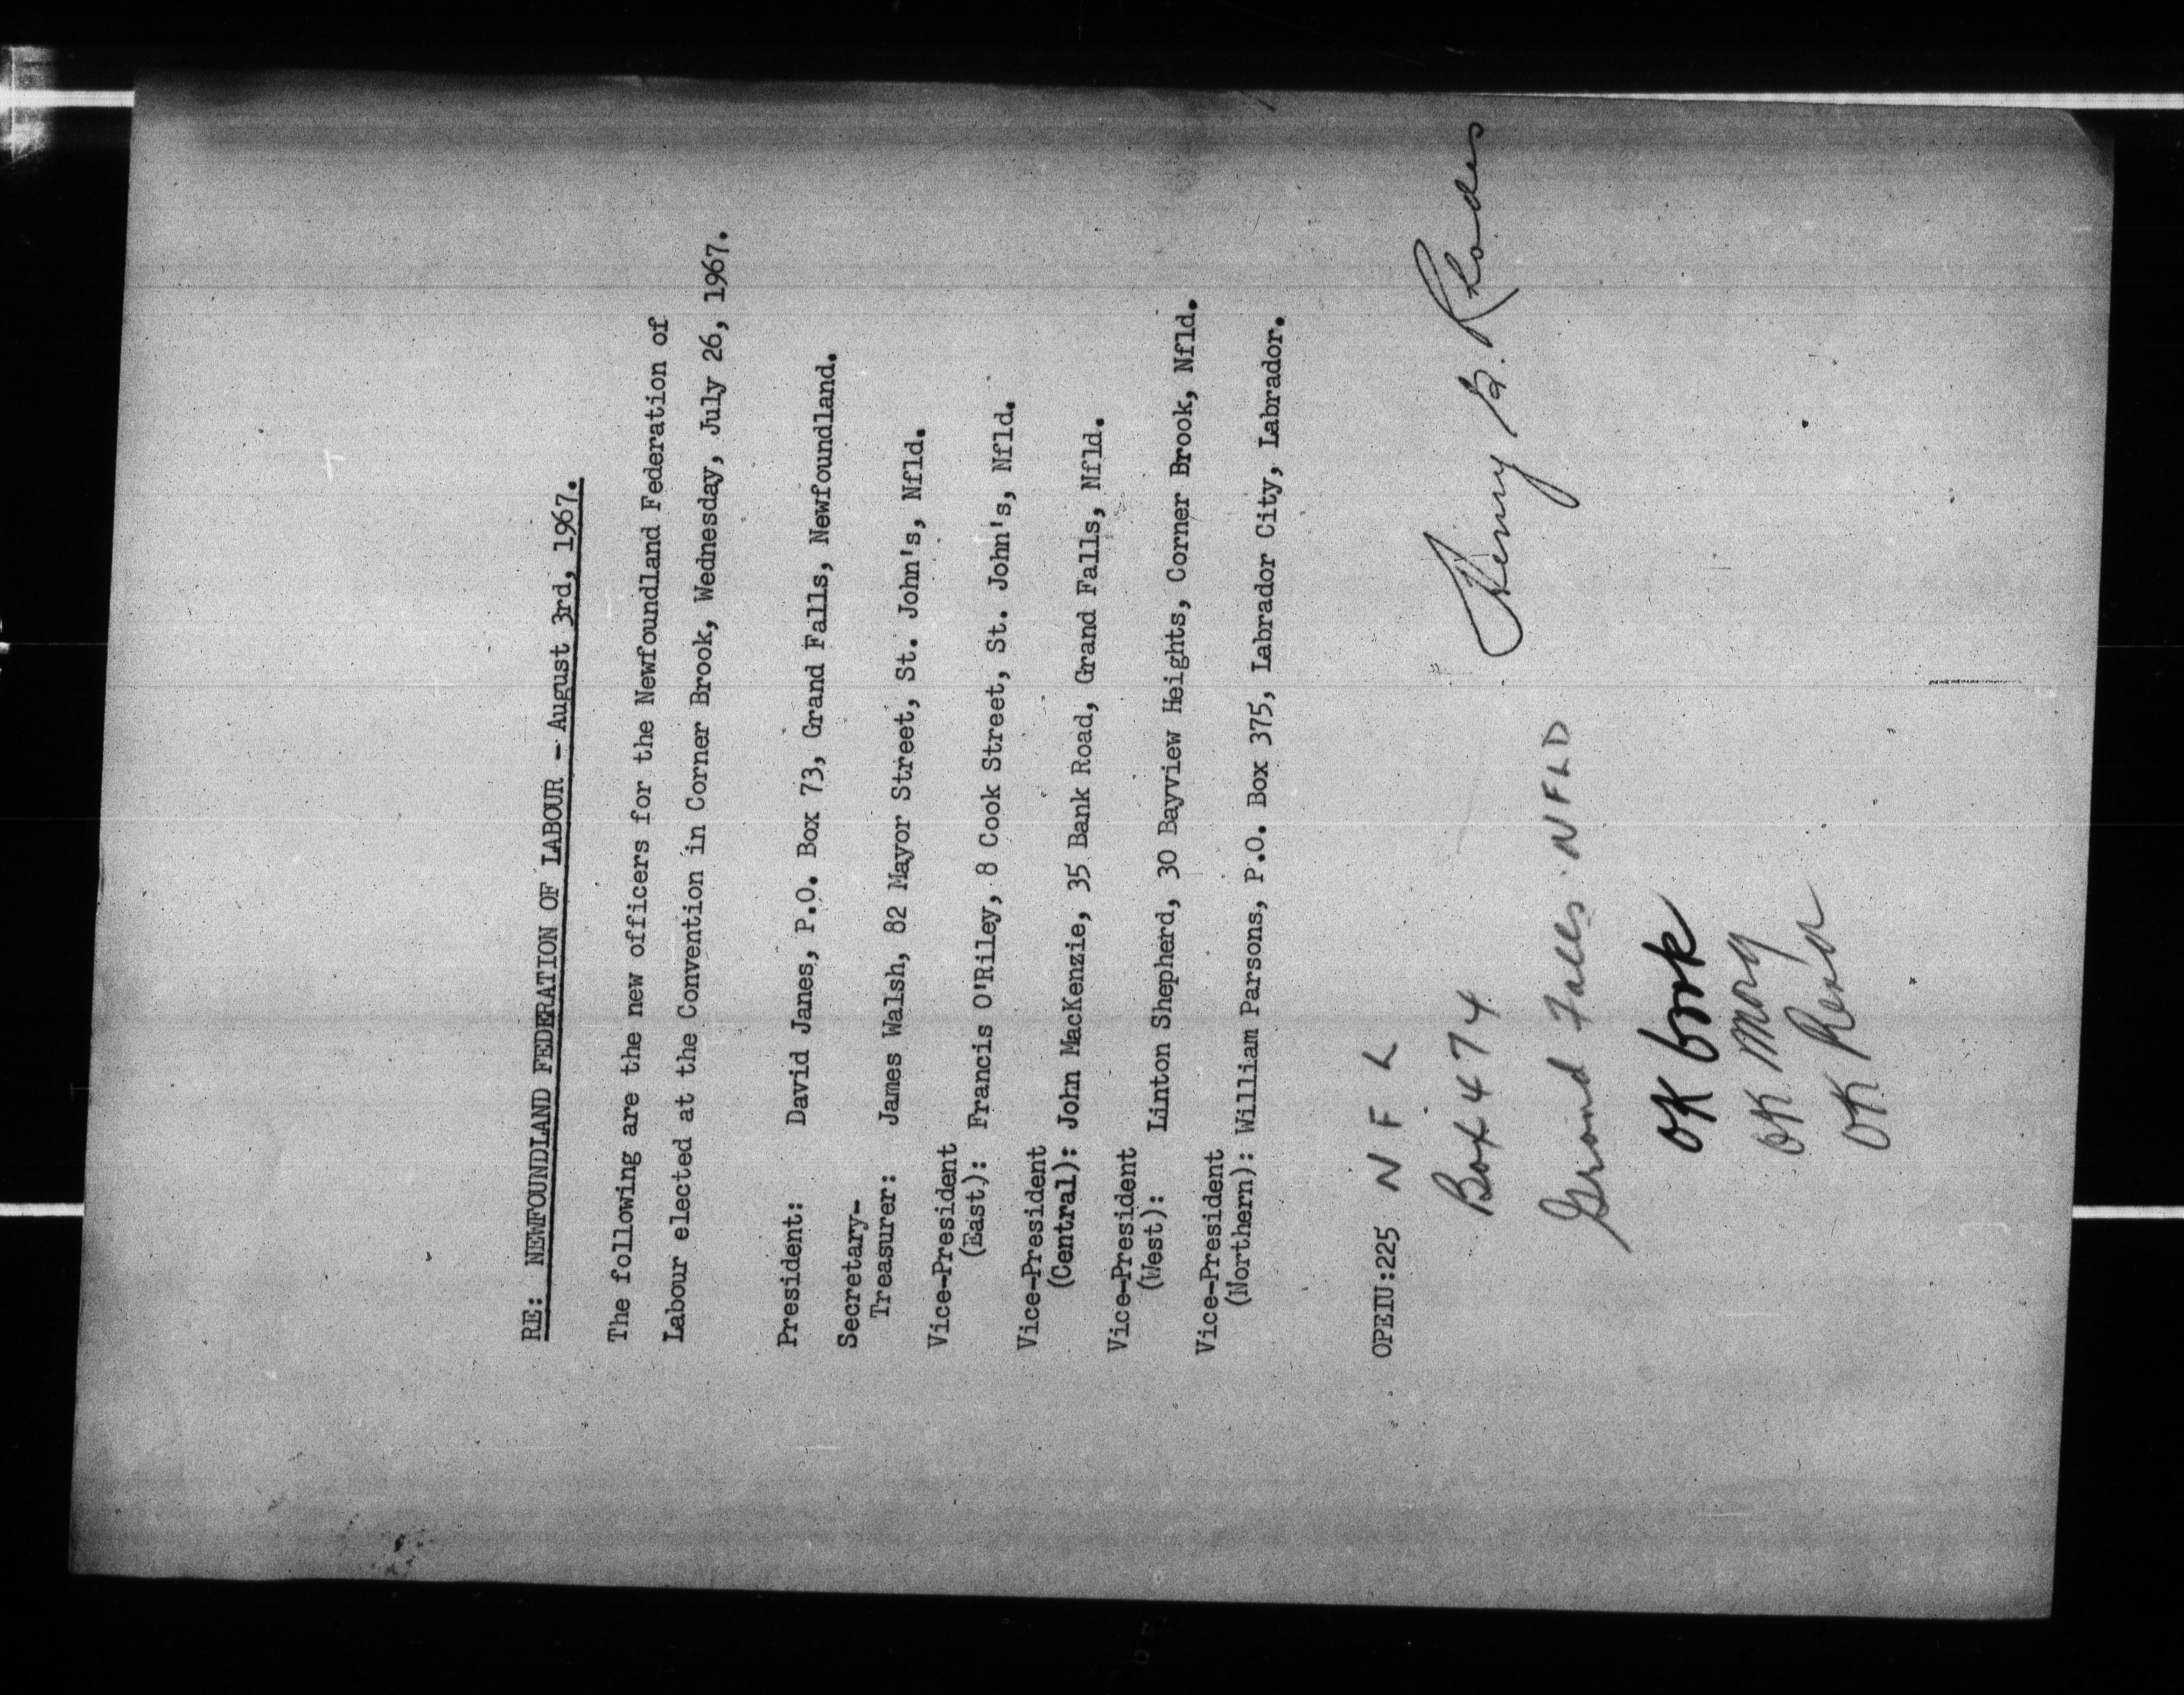 RE: NEWFOUNDLAND FEDERATION OF LABOUR - August 3rd, 1967.
The following are the new officers for the Newfoundland Federation of
Labour elected at the Convention in Corner Brook, Wednesday, July 26, 1967.
President: David Janes, P.O. Box 73, Grand Falls, Newfoundland.
Secretary-
Treasurer: James Walsh, 82 Mayor Street, St. John's, Nfld.
Vice-President
(East): Francis O'Riley, 8 Cook Street, St. John's, Nfld.
Vice-President
(Central): John MacKenzie, 35 Bank Road, Grand Falls, Nfld.
Vice-President
(West): Linton Shepherd, 30 Bayview Heights, Corner Brook, Nfld.
Vice-President
(Northern): William Parsons, P.O. Box 375, Labrador City, Labrador.
OPEIU:225 N F L
Box 474 Henry B. Rhodes
Grand Falls. NFLD
OK book
OK
OK